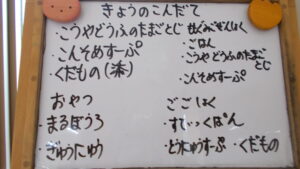 きょうのこんだて
・こうやどうふのたまごとじ
・こんそめすーぷ
・くだもの(
・ごはん
・こうやどうふのたまご
とじ
・こんそめすーぷ
おやつ
・まるぼうろ
・ぎゅうにゅう
ごごしょく
・すてぃっくぱん
・とうにゅうすーぷ ・くだもの